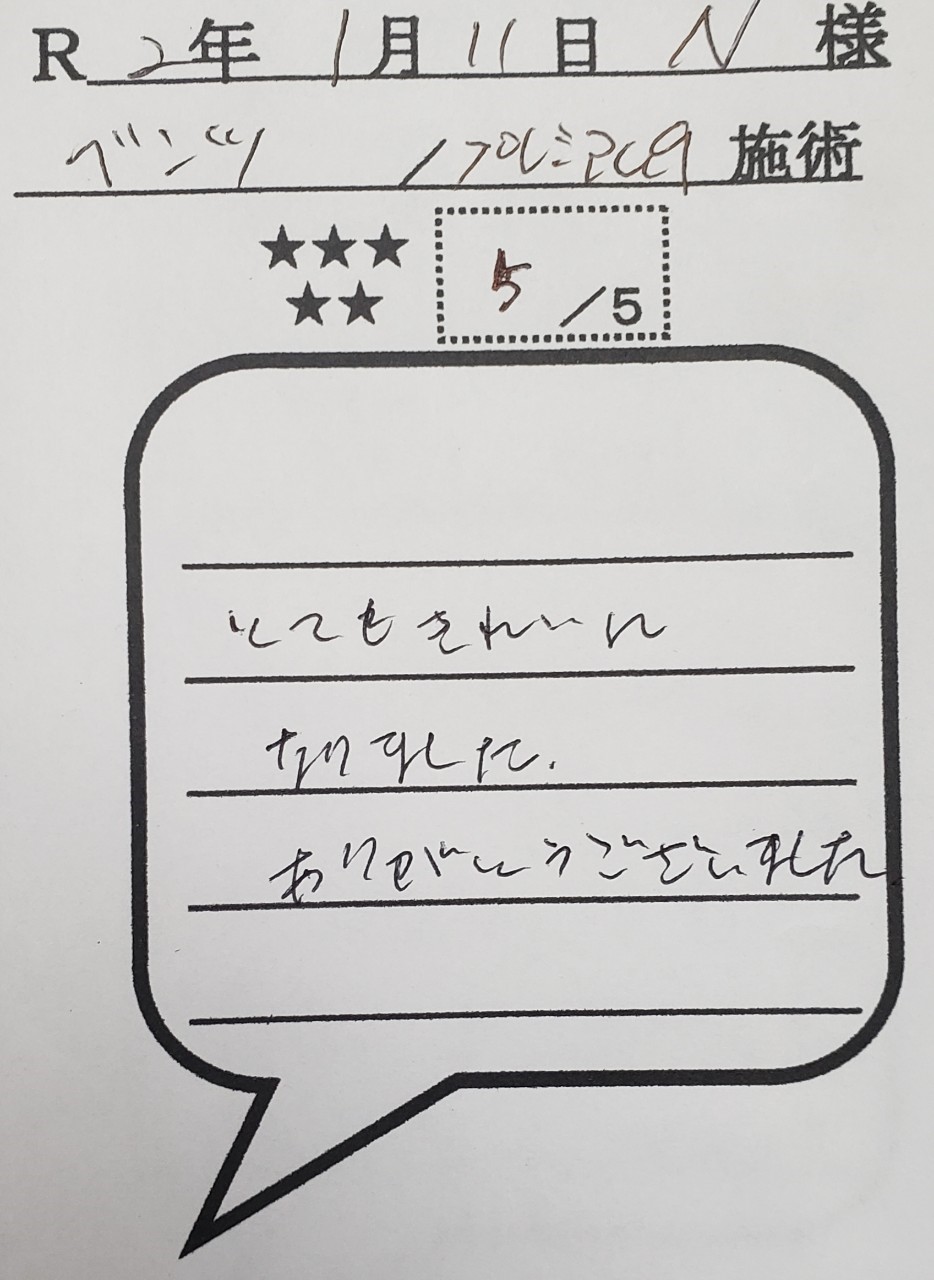 R 2年 1月 11日 N 様
ベンツ /プレミアムC9 施術
★★★
★★
5/5
とてもきれいに
なりました.
ありがとうございました